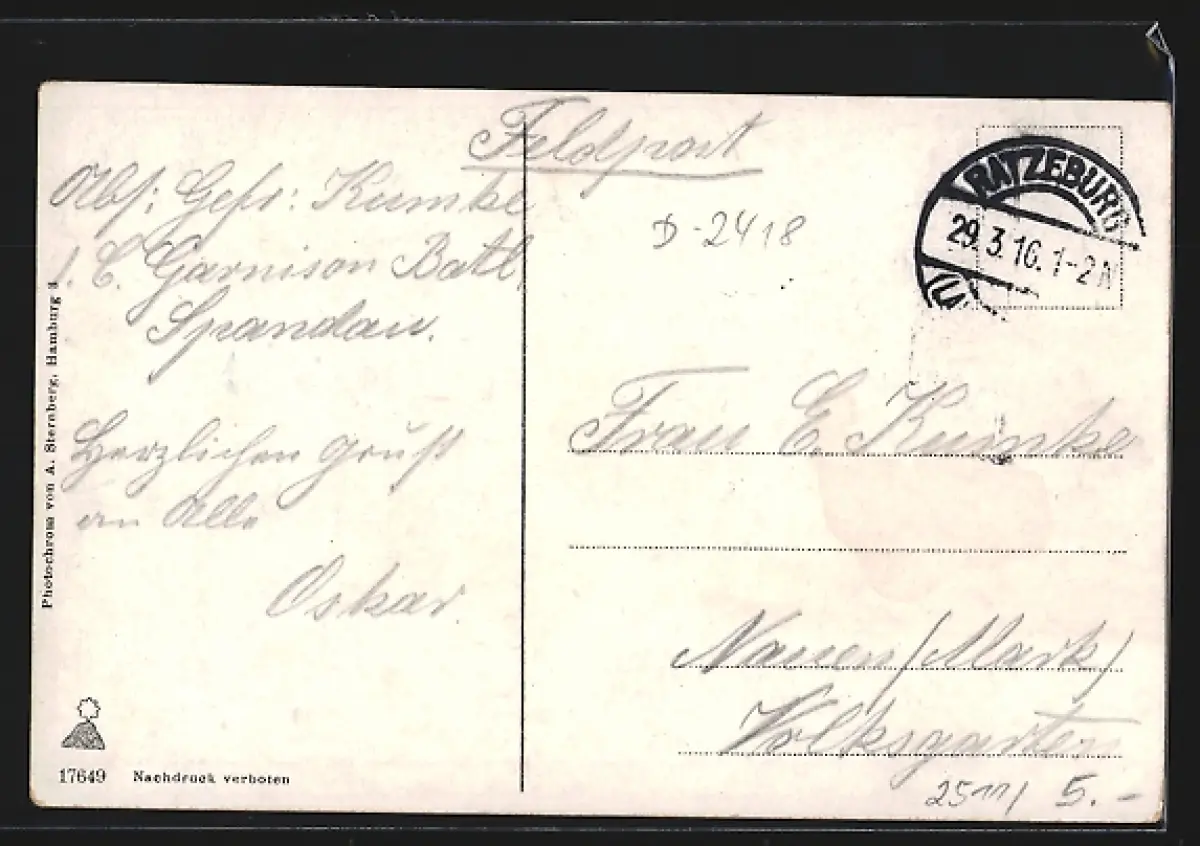 Feldpost
Abs: Gefr: Kumke
1. E. Garnison Batl
Spandau.
Herzlichen Gruß
an Alle
Oskar.
D-2418
RATZEBURG
29.3.16. 1-2 N
Frau E. Kumke
Nauen (Mark)
Volksgarten
5.-
Photochrom von A. Sternberg, Hamburg
17649 Nachdruck verboten